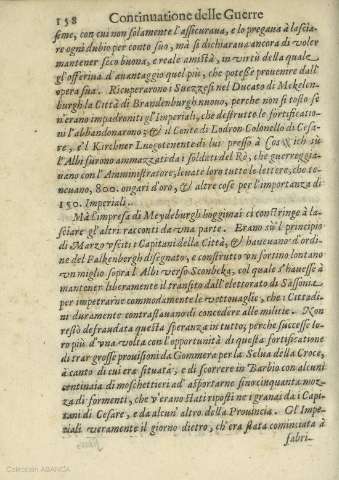 158 Continuatione delle Guerre
seme, con cui non solamente l'assicuraua, e lo pregaua à lascia-
re ogni dubio per conto suo, mà si dichiaraua ancora di voler
mantener seco buona, e reale amistà, in virtù della quale
gl'offeriua d'auantaggio quel più, che potesse prouenire dall'
opera sua. Ricuperarono i Suezzesi nel Ducato di Mekelen-
burgh la Città di Brandenburgh nuouo, perche non sì tosto se
n'erano impadroniti gl'Imperiali, che destrutte le fortificatio-
ni l'abbandonarono; & il Conte di Lodron Colonello di Cesa-
re, e'l Kirchner Luogotenente di lui presso à sù
l'Albi furono ammazzati da i soldati del Rè, che guerreggia-
uano con l'Amministratore, leuate loro tutte le lettere, che te-
neuano, 800. ongari d'oro, & altre cose per l'importanza di
150. Imperiali.
Mà l'impresa di Meydeburgh hoggimai ci constringe à la-
sciare gl'altri racconti da vna parte. Erano sù'l principio
di Marzo vsciti i Capitani della Città, & haueuano d'ordi-
ne del Falkenbergh disegnato, e construtto vn fortino lontano
vn miglio sopra l'Albi verso Sconbeka, col quale s'hauesse à
mantener liberamente il transito dall'elettorato di Sassonia
per impetrarne commodamente le vettouaglie, che i Cittadi-
ni duramente contrastauano di concedere alle militie. Non
restò defraudata questa speranza in tutto, perche successe lo-
ro più d'vna volta con l'opportunità di questa fortificatione
di trar grosse prouisioni da Gommera per la Selua della Croce,
à canto di cui era situata, e di scorrere in Barbio con alcuni
centinaia di moschettieri ad asportarne sino cinquanta moz-
za di formenti, che v'erano stati riposti ne i granai da i Capi-
tani di Cesare, e da alcun' altro della Prouincia. Gl'Impe-
riali veramente il giorno dietro, ch'era stata cominciata à
fabri-
Colección ABANCA